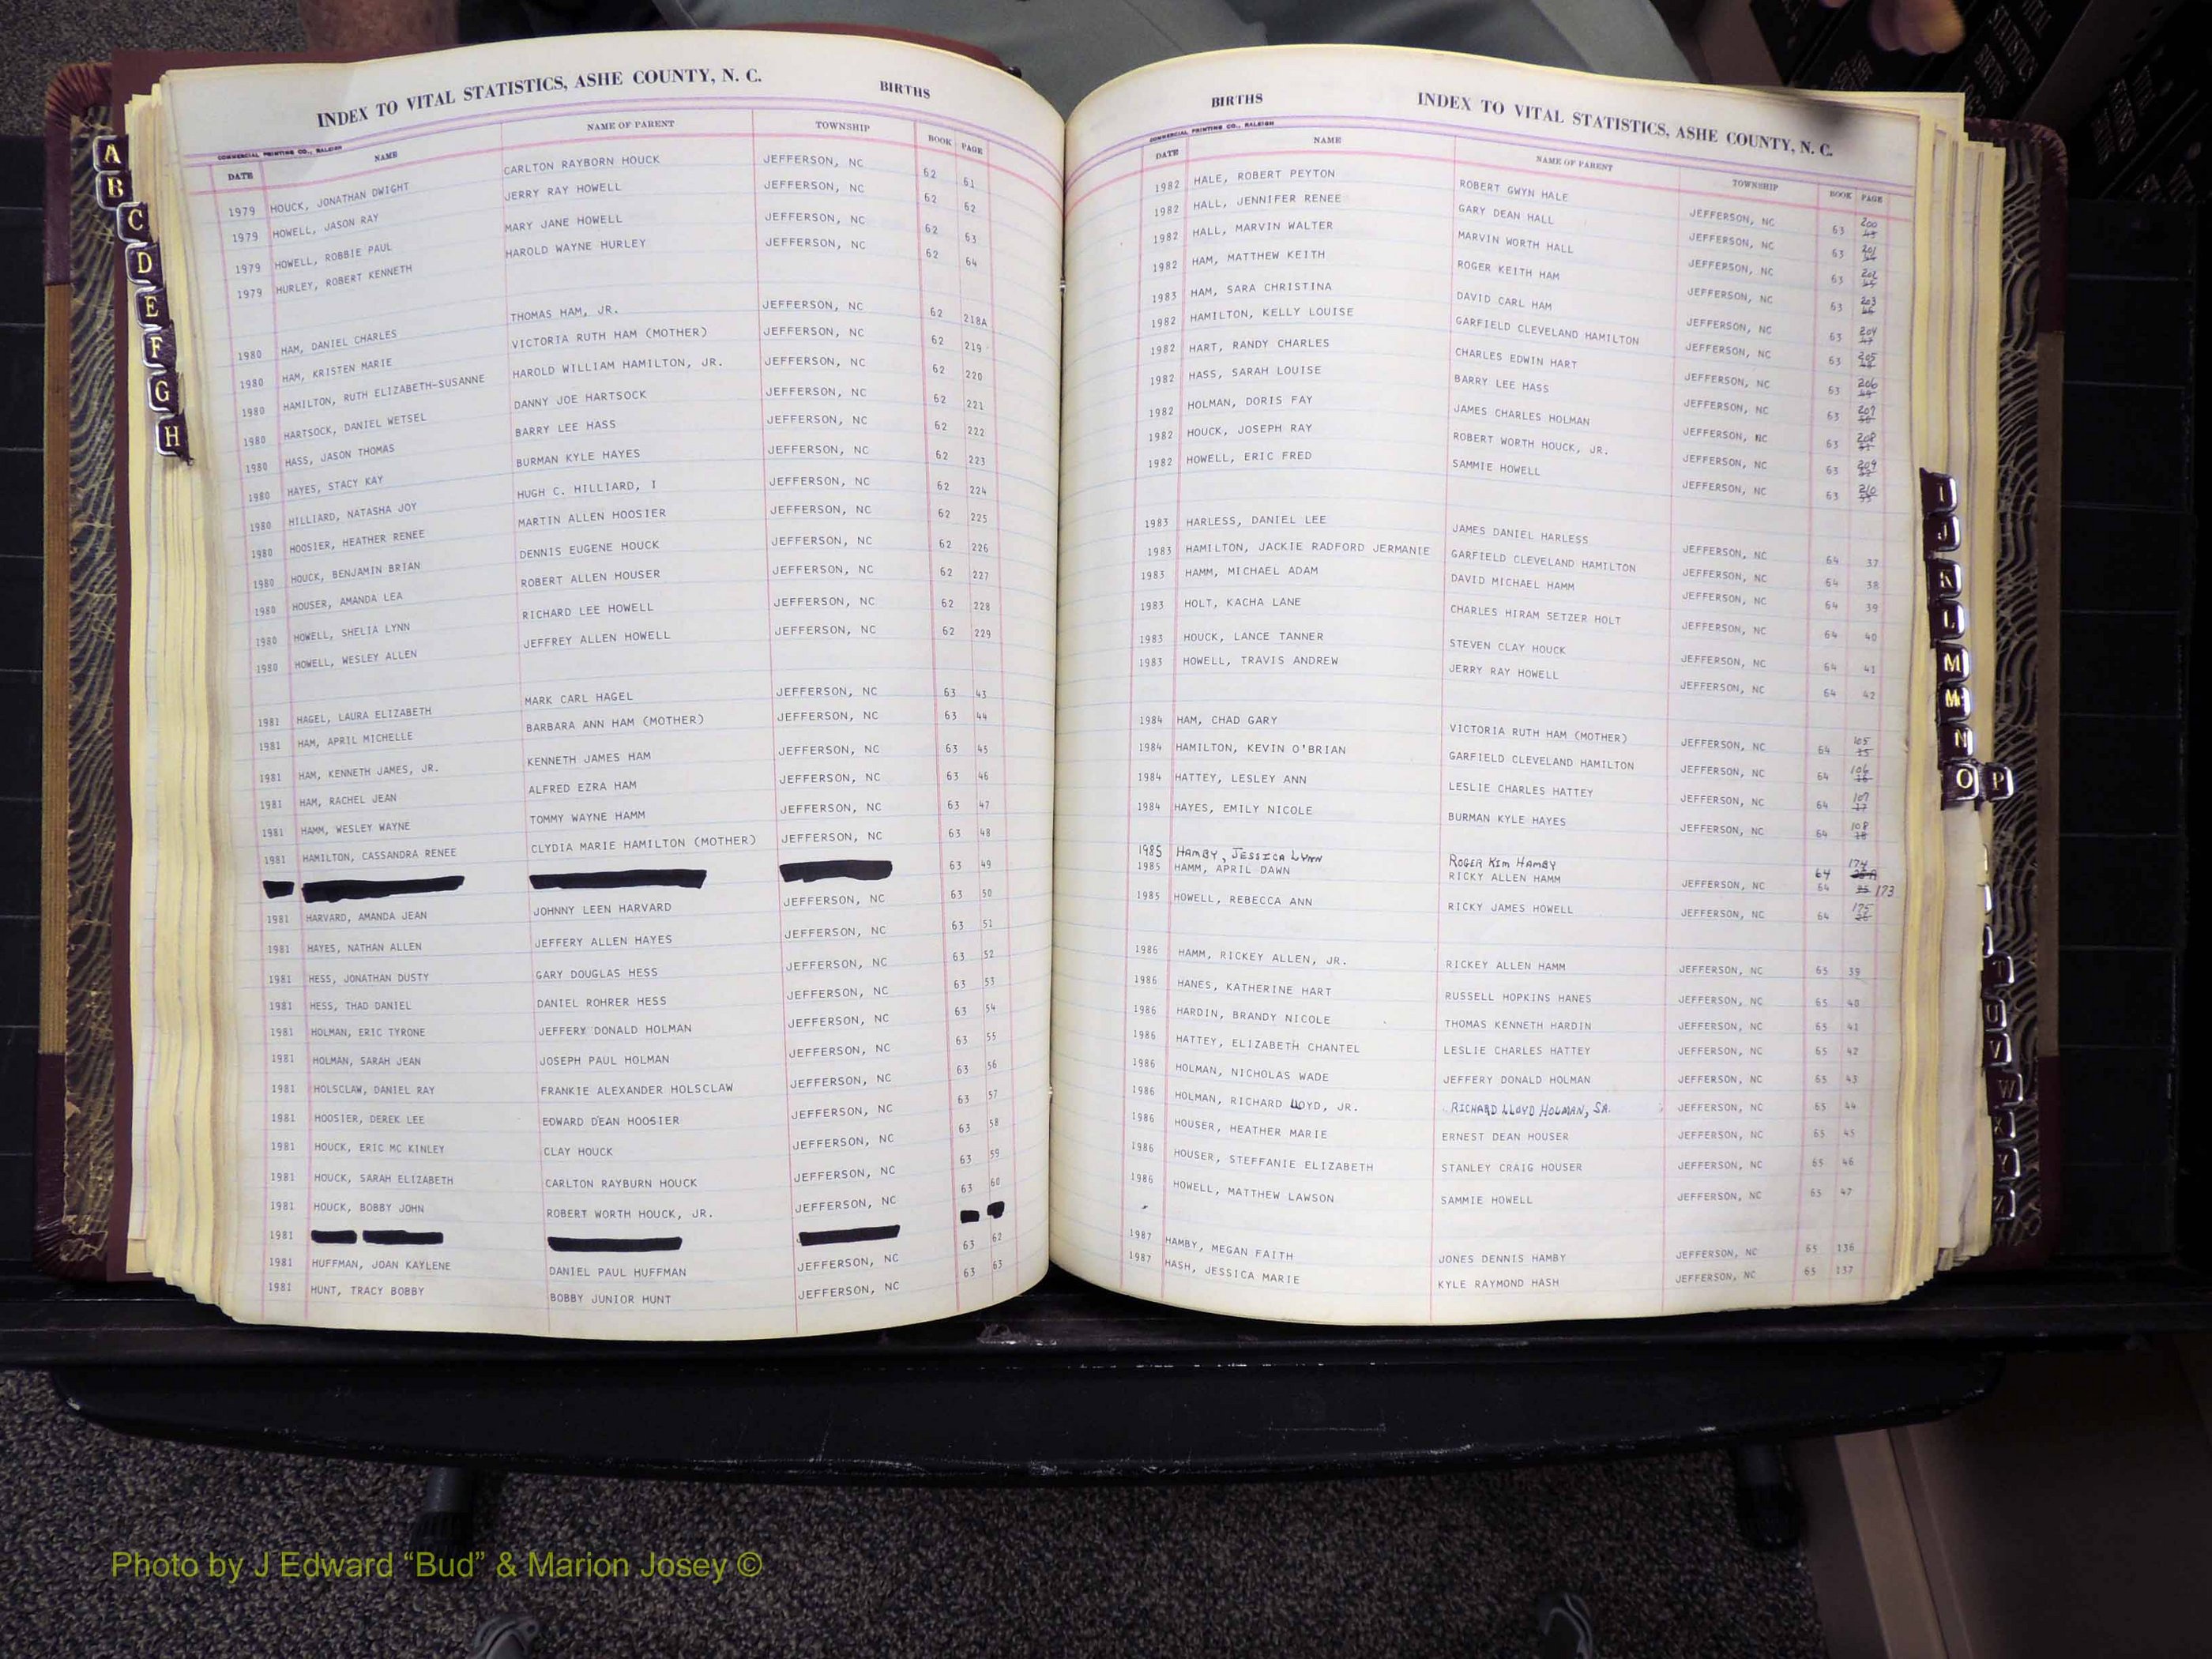 INDEX TO VITAL STATISTICS, ASHE COUNTY, N. C. BIRTHS
COMMERCIAL PRINTING CO., RALEIGH
DATE NAME NAME OF PARENT TOWNSHIP BOOK PAGE
1979 HOUCK, JONATHAN DWIGHT CARLTON RAYBORN HOUCK JEFFERSON, NC 62 61
1979 HOWELL, JASON RAY JERRY RAY HOWELL JEFFERSON, NC 62 62
1979 HOWELL, ROBBIE PAUL MARY JANE HOWELL JEFFERSON, NC 62 63
1979 HURLEY, ROBERT KENNETH HAROLD WAYNE HURLEY JEFFERSON, NC 62 64
1980 HAM, DANIEL CHARLES THOMAS HAM, JR. JEFFERSON, NC 62 218A
1980 HAM, KRISTEN MARIE VICTORIA RUTH HAM (MOTHER) JEFFERSON, NC 62 219
1980 HAMILTON, RUTH ELIZABETH-SUSANNE HAROLD WILLIAM HAMILTON, JR. JEFFERSON, NC 62 220
1980 HARTSOCK, DANIEL WETSEL DANNY JOE HARTSOCK JEFFERSON, NC 62 221
1980 HASS, JASON THOMAS BARRY LEE HASS JEFFERSON, NC 62 222
1980 HAYES, STACY KAY BURMAN KYLE HAYES JEFFERSON, NC 62 223
1980 HILLIARD, NATASHA JOY HUGH C. HILLIARD, I JEFFERSON, NC 62 224
1980 HOOSIER, HEATHER RENEE MARTIN ALLEN HOOSIER JEFFERSON, NC 62 225
1980 HOUCK, BENJAMIN BRIAN DENNIS EUGENE HOUCK JEFFERSON, NC 62 226
1980 HOUSER, AMANDA LEA ROBERT ALLEN HOUSER JEFFERSON, NC 62 227
1980 HOWELL, SHELIA LYNN RICHARD LEE HOWELL JEFFERSON, NC 62 228
1980 HOWELL, WESLEY ALLEN JEFFREY ALLEN HOWELL JEFFERSON, NC 62 229
1981 HAGEL, LAURA ELIZABETH MARK CARL HAGEL JEFFERSON, NC 63 43
1981 HAM, APRIL MICHELLE BARBARA ANN HAM (MOTHER) JEFFERSON, NC 63 44
1981 HAM, KENNETH JAMES, JR. KENNETH JAMES HAM JEFFERSON, NC 63 45
1981 HAM, RACHEL JEAN ALFRED EZRA HAM JEFFERSON, NC 63 46
1981 HAMM, WESLEY WAYNE TOMMY WAYNE HAMM JEFFERSON, NC 63 47
1981 HAMILTON, CASSANDRA RENEE CLYDIA MARIE HAMILTON (MOTHER) JEFFERSON, NC 63 48
63 49
1981 HARVARD, AMANDA JEAN JOHNNY LEEN HARVARD JEFFERSON, NC 63 50
1981 HAYES, NATHAN ALLEN JEFFERY ALLEN HAYES JEFFERSON, NC 63 51
1981 HESS, JONATHAN DUSTY GARY DOUGLAS HESS JEFFERSON, NC 63 52
1981 HESS, THAD DANIEL DANIEL ROHRER HESS JEFFERSON, NC 63 53
1981 HOLMAN, ERIC TYRONE JEFFERY DONALD HOLMAN JEFFERSON, NC 63 54
1981 HOLMAN, SARAH JEAN JOSEPH PAUL HOLMAN JEFFERSON, NC 63 55
1981 HOLSCLAW, DANIEL RAY FRANKIE ALEXANDER HOLSCLAW JEFFERSON, NC 63 56
1981 HOOSIER, DEREK LEE EDWARD DEAN HOOSIER JEFFERSON, NC 63 57
1981 HOUCK, ERIC MC KINLEY CLAY HOUCK JEFFERSON, NC 63 58
1981 HOUCK, SARAH ELIZABETH CARLTON RAYBURN HOUCK JEFFERSON, NC 63 59
1981 HOUCK, BOBBY JOHN ROBERT WORTH HOUCK, JR. JEFFERSON, NC 63 60
1981
1981 HUFFMAN, JOAN KAYLENE DANIEL PAUL HUFFMAN JEFFERSON, NC 63 62
1981 HUNT, TRACY BOBBY BOBBY JUNIOR HUNT JEFFERSON, NC 63 63
A
B
C
D
E
F
G
H
BIRTHS INDEX TO VITAL STATISTICS, ASHE COUNTY, N. C.
COMMERCIAL PRINTING CO., RALEIGH
DATE NAME NAME OF PARENT TOWNSHIP BOOK PAGE
1982 HALE, ROBERT PEYTON ROBERT GWYN HALE JEFFERSON, NC 63 200
1982 HALL, JENNIFER RENEE GARY DEAN HALL JEFFERSON, NC 63 201
1982 HALL, MARVIN WALTER MARVIN WORTH HALL JEFFERSON, NC 63 202
1982 HAM, MATTHEW KEITH ROGER KEITH HAM JEFFERSON, NC 63 203
1983 HAM, SARA CHRISTINA DAVID CARL HAM JEFFERSON, NC 63 204
1982 HAMILTON, KELLY LOUISE GARFIELD CLEVELAND HAMILTON JEFFERSON, NC 63 205
1982 HART, RANDY CHARLES CHARLES EDWIN HART JEFFERSON, NC 63 206
1982 HASS, SARAH LOUISE BARRY LEE HASS JEFFERSON, NC 63 207
1982 HOLMAN, DORIS FAY JAMES CHARLES HOLMAN JEFFERSON, NC 63 208
1982 HOUCK, JOSEPH RAY ROBERT WORTH HOUCK, JR. JEFFERSON, NC 63 209
1982 HOWELL, ERIC FRED SAMMIE HOWELL JEFFERSON, NC 63 210
1983 HARLESS, DANIEL LEE JAMES DANIEL HARLESS JEFFERSON, NC 64 37
1983 HAMILTON, JACKIE RADFORD JERMANIE GARFIELD CLEVELAND HAMILTON JEFFERSON, NC 64 38
1983 HAMM, MICHAEL ADAM DAVID MICHAEL HAMM JEFFERSON, NC 64 39
1983 HOLT, KACHA LANE CHARLES HIRAM SETZER HOLT JEFFERSON, NC 64 40
1983 HOUCK, LANCE TANNER STEVEN CLAY HOUCK JEFFERSON, NC 64 41
1983 HOWELL, TRAVIS ANDREW JERRY RAY HOWELL JEFFERSON, NC 64 42
1984 HAM, CHAD GARY VICTORIA RUTH HAM (MOTHER) JEFFERSON, NC 64 105
1984 HAMILTON, KEVIN O'BRIAN GARFIELD CLEVELAND HAMILTON JEFFERSON, NC 64 106
1984 HATTEY, LESLEY ANN LESLIE CHARLES HATTEY JEFFERSON, NC 64 107
1984 HAYES, EMILY NICOLE BURMAN KYLE HAYES JEFFERSON, NC 64 108
1985 HAMBY, JESSICA LYNN ROGER KEM HAMBY 64 174
1985 HAMM, APRIL DAWN RICKY ALLEN HAMM JEFFERSON, NC 64 173
1985 HOWELL, REBECCA ANN RICKY JAMES HOWELL JEFFERSON, NC 64 175
1986 HAMM, RICKEY ALLEN, JR. RICKEY ALLEN HAMM JEFFERSON, NC 65 39
1986 HANES, KATHERINE HART RUSSELL HOPKINS HANES JEFFERSON, NC 65 40
1986 HARDIN, BRANDY NICOLE THOMAS KENNETH HARDIN JEFFERSON, NC 65 41
1986 HATTEY, ELIZABETH CHANTEL LESLIE CHARLES HATTEY JEFFERSON, NC 65 42
1986 HOLMAN, NICHOLAS WADE JEFFERY DONALD HOLMAN JEFFERSON, NC 65 43
1986 HOLMAN, RICHARD LLOYD, JR. RICHARD LLOYD HOLMAN, SR. JEFFERSON, NC 65 44
1986 HOUSER, HEATHER MARIE ERNEST DEAN HOUSER JEFFERSON, NC 65 45
1986 HOUSER, STEFFANIE ELIZABETH STANLEY CRAIG HOUSER JEFFERSON, NC 65 46
1986 HOWELL, MATTHEW LAWSON SAMMIE HOWELL JEFFERSON, NC 65 47
1987 HAMBY, MEGAN FAITH JONES DENNIS HAMBY JEFFERSON, NC 65 136
1987 HASH, JESSICA MARIE KYLE RAYMOND HASH JEFFERSON, NC 65 137
I
J
K
L
M
Mc
N
O P
T
U
V
W
X
Y
Z
Photo by J Edward “Bud” & Marion Josey ©